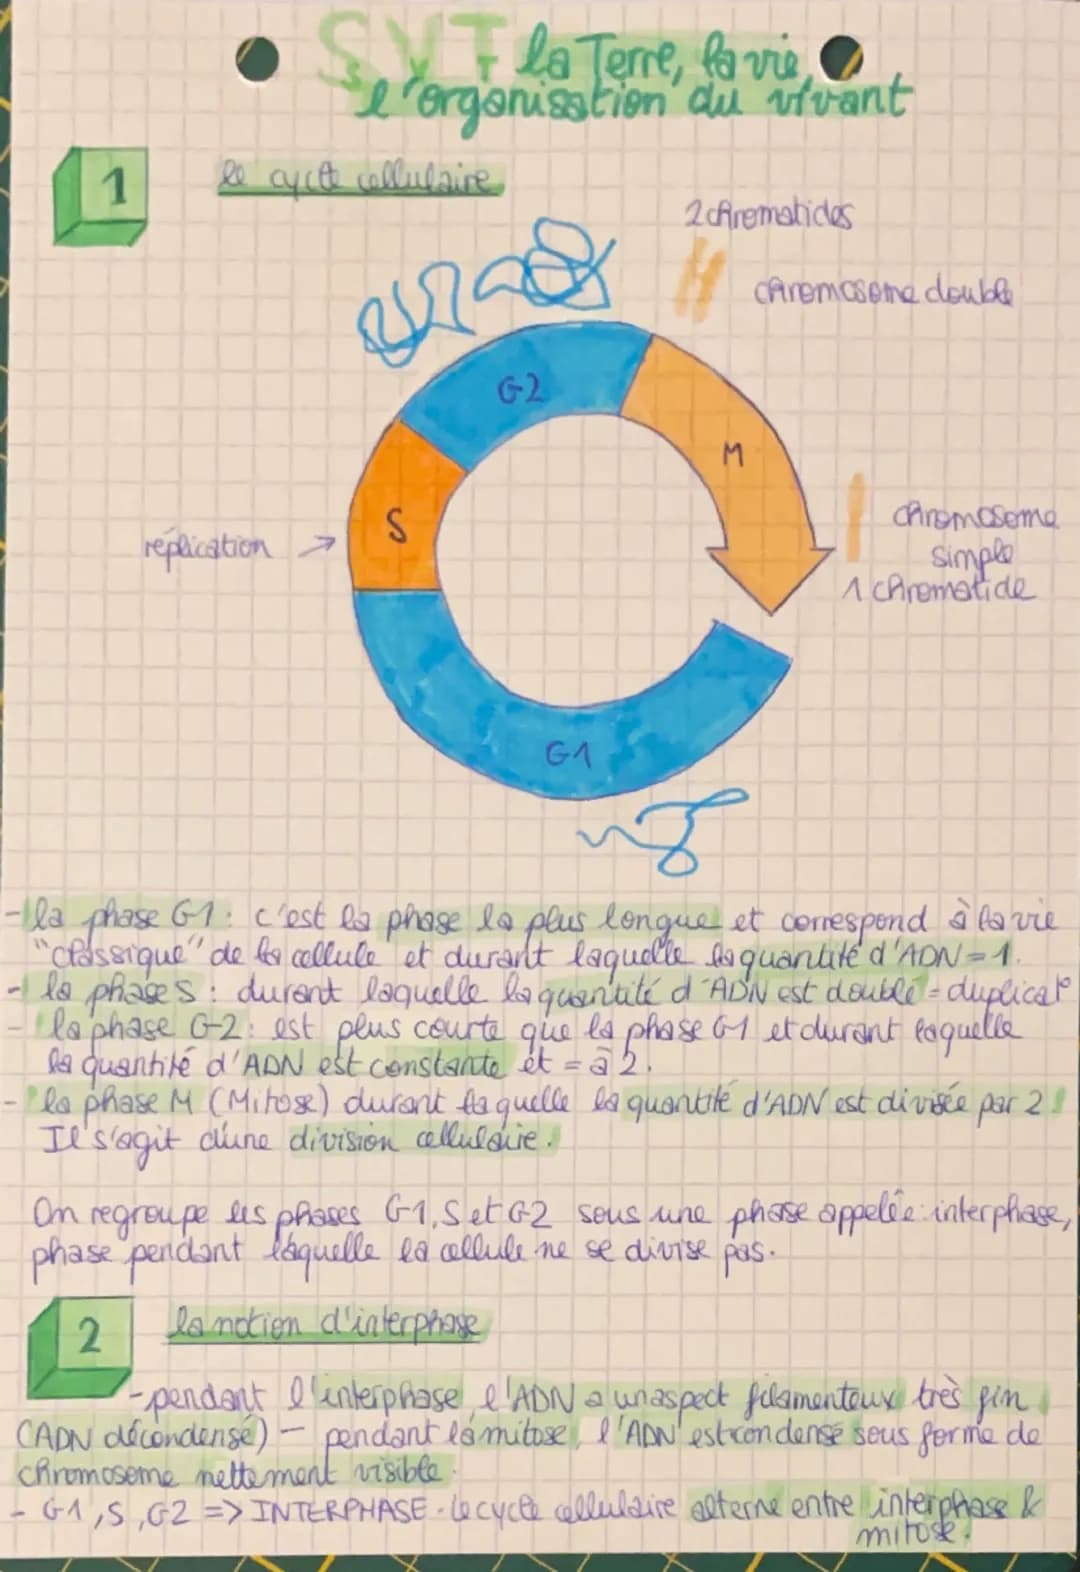 SVT la Terre, la vie,
l'organisation du vivant
1
le cycle cellulaire
2 chromatides
chromosome double
G2
M
S
réplication
chromosome
simple
1 chromatide
G1
- la phase G1 : c'est la phase la plus longue et correspond à la vie
"classique" de la cellule et durant laquelle la quantité d'ADN = 1.
- la phase S : durant laquelle la quantité d'ADN est doublé = duplicat°
- la phase G2 : est plus courte que la phase G1 et durant laquelle
la quantité d'ADN est constante et = à 2.
- la phase M (Mitose) durant laquelle la quantité d'ADN est divisée par 2
Il s'agit d'une division cellulaire.
On regroupe les phases G1, S et G2 sous une phase appelée interphase,
phase pendant laquelle la cellule ne se divise pas.
2
la notion d'interphase
- pendant l'interphase, l'ADN a un aspect filamenteux très fin
(ADN décondensé) - pendant la mitose, l'ADN est condensé sous forme de
chromosome nettement visible.
- G1, S, G2 => INTERPHASE. Le cycle cellulaire alterne entre interphase &
mitose.